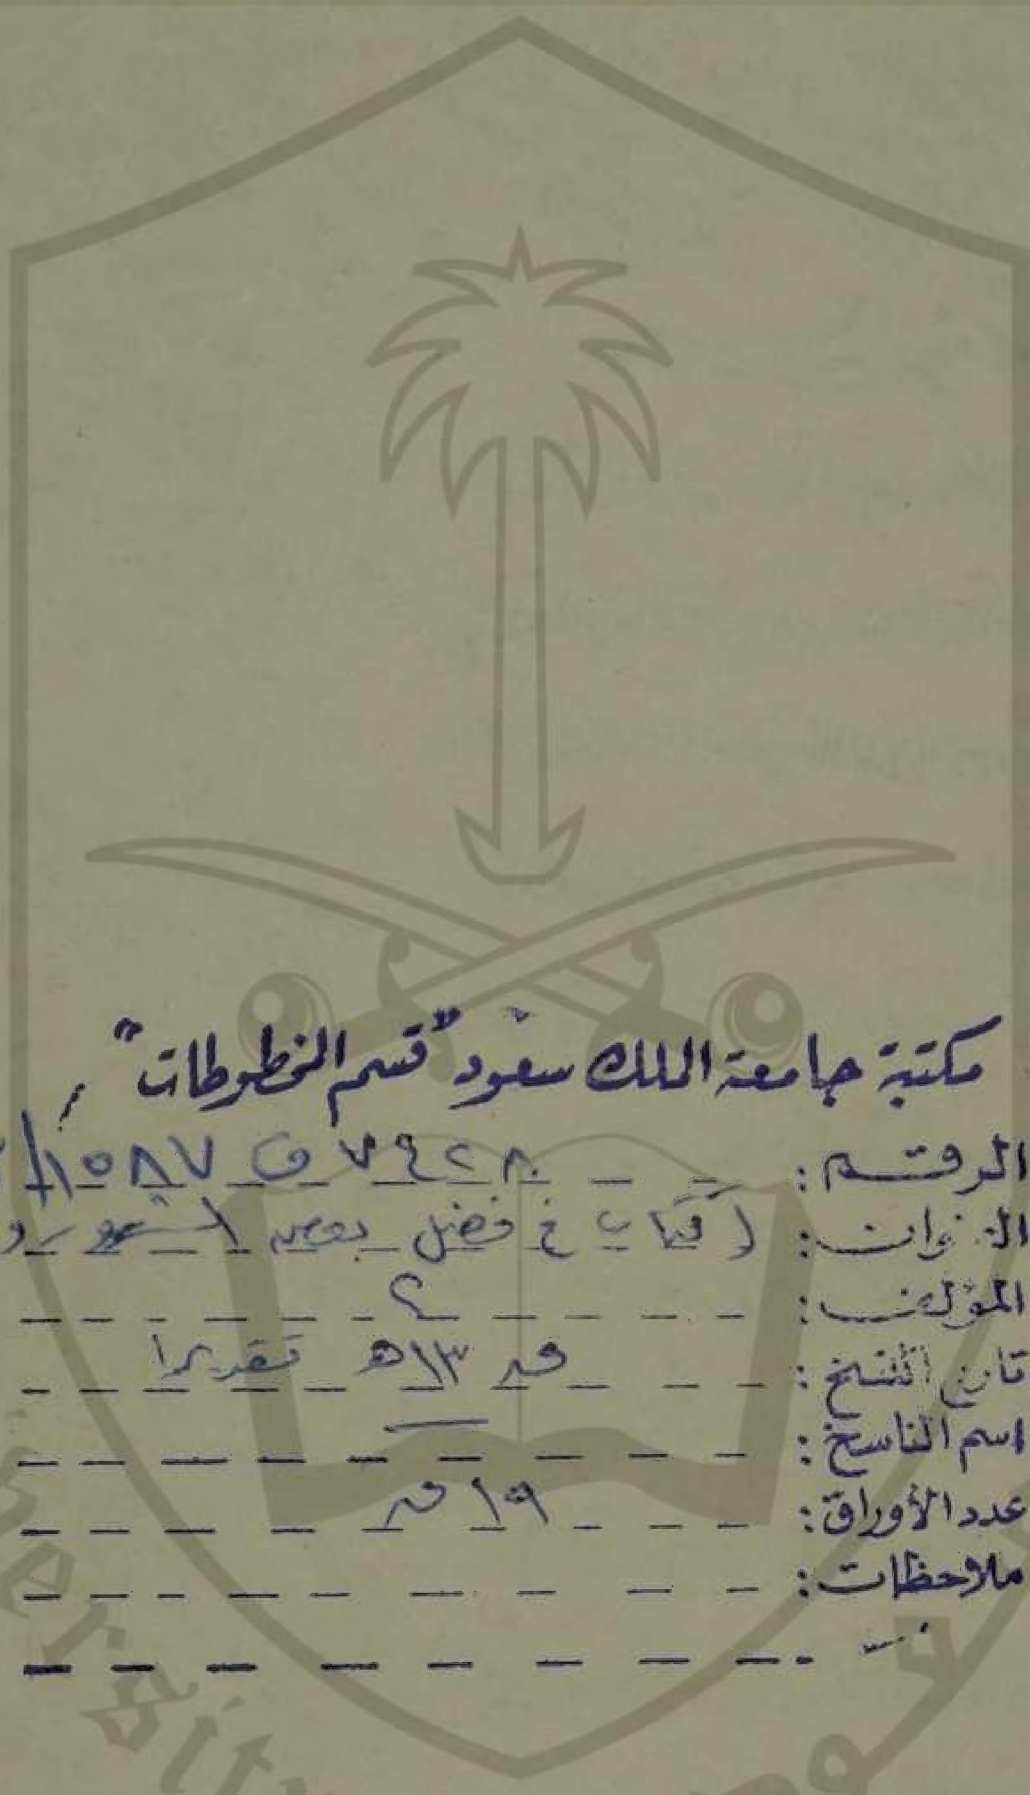 مكتبة جامعة الملك سعود "قسم المخطوطات"
الرقم: ٧٤٢٨ ف ١٥٨٧/
العنوان: (كتاب في فضل بعض السور و
المؤلف: ؟
تاريخ النسخ: ق ١٣ هـ تقديرا
اسم الناسخ: ــ
عدد الأوراق: ١٩ ق
ملاحظات: